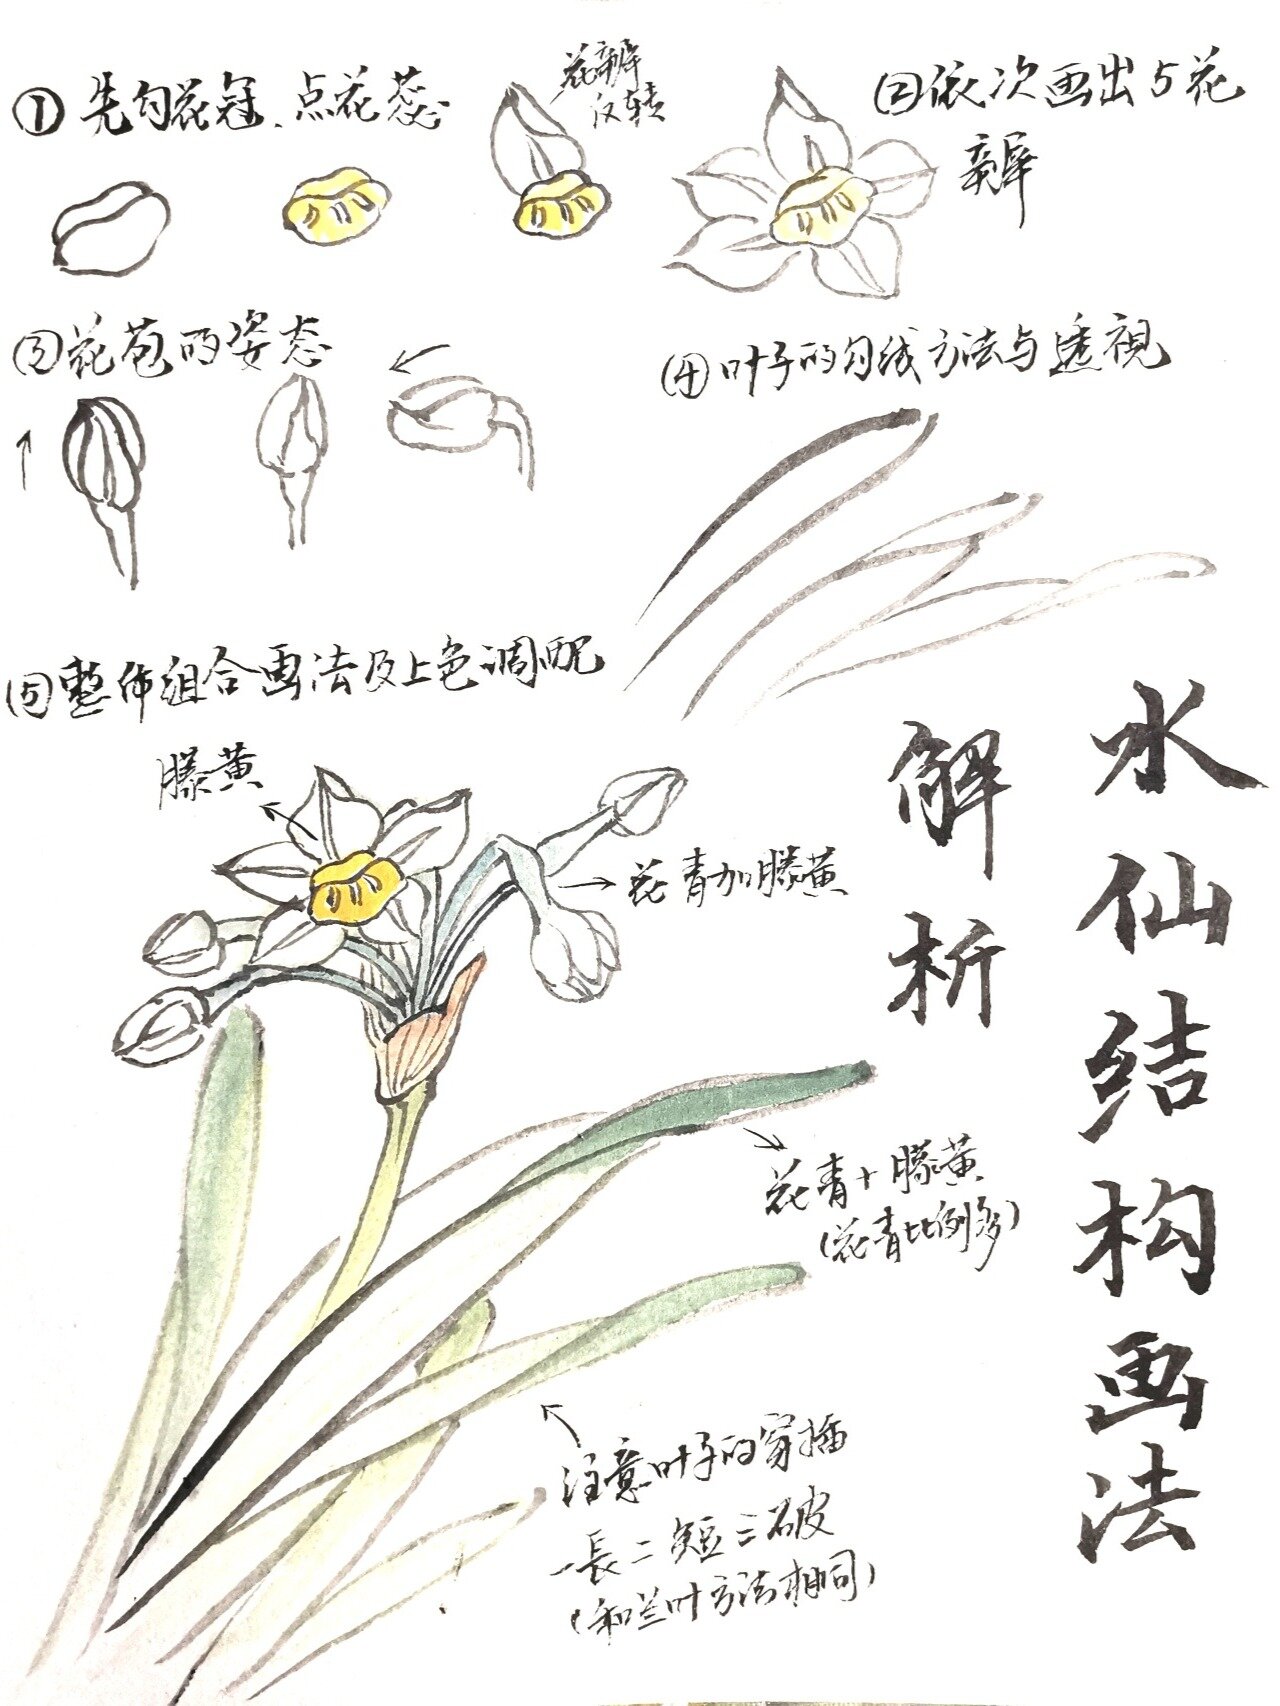 水仙结构画法
解析
①先勾花冠、点花蕊
花瓣
反转
②依次画出5花
瓣
③花苞的姿态
④叶子的勾线方法与透視
⑤整体组合画法及上色调配
藤黄
花青加藤黄
花青+藤黄
(花青比例多)
注意叶子的穿插
一長二短三破
(和兰叶方法相同)